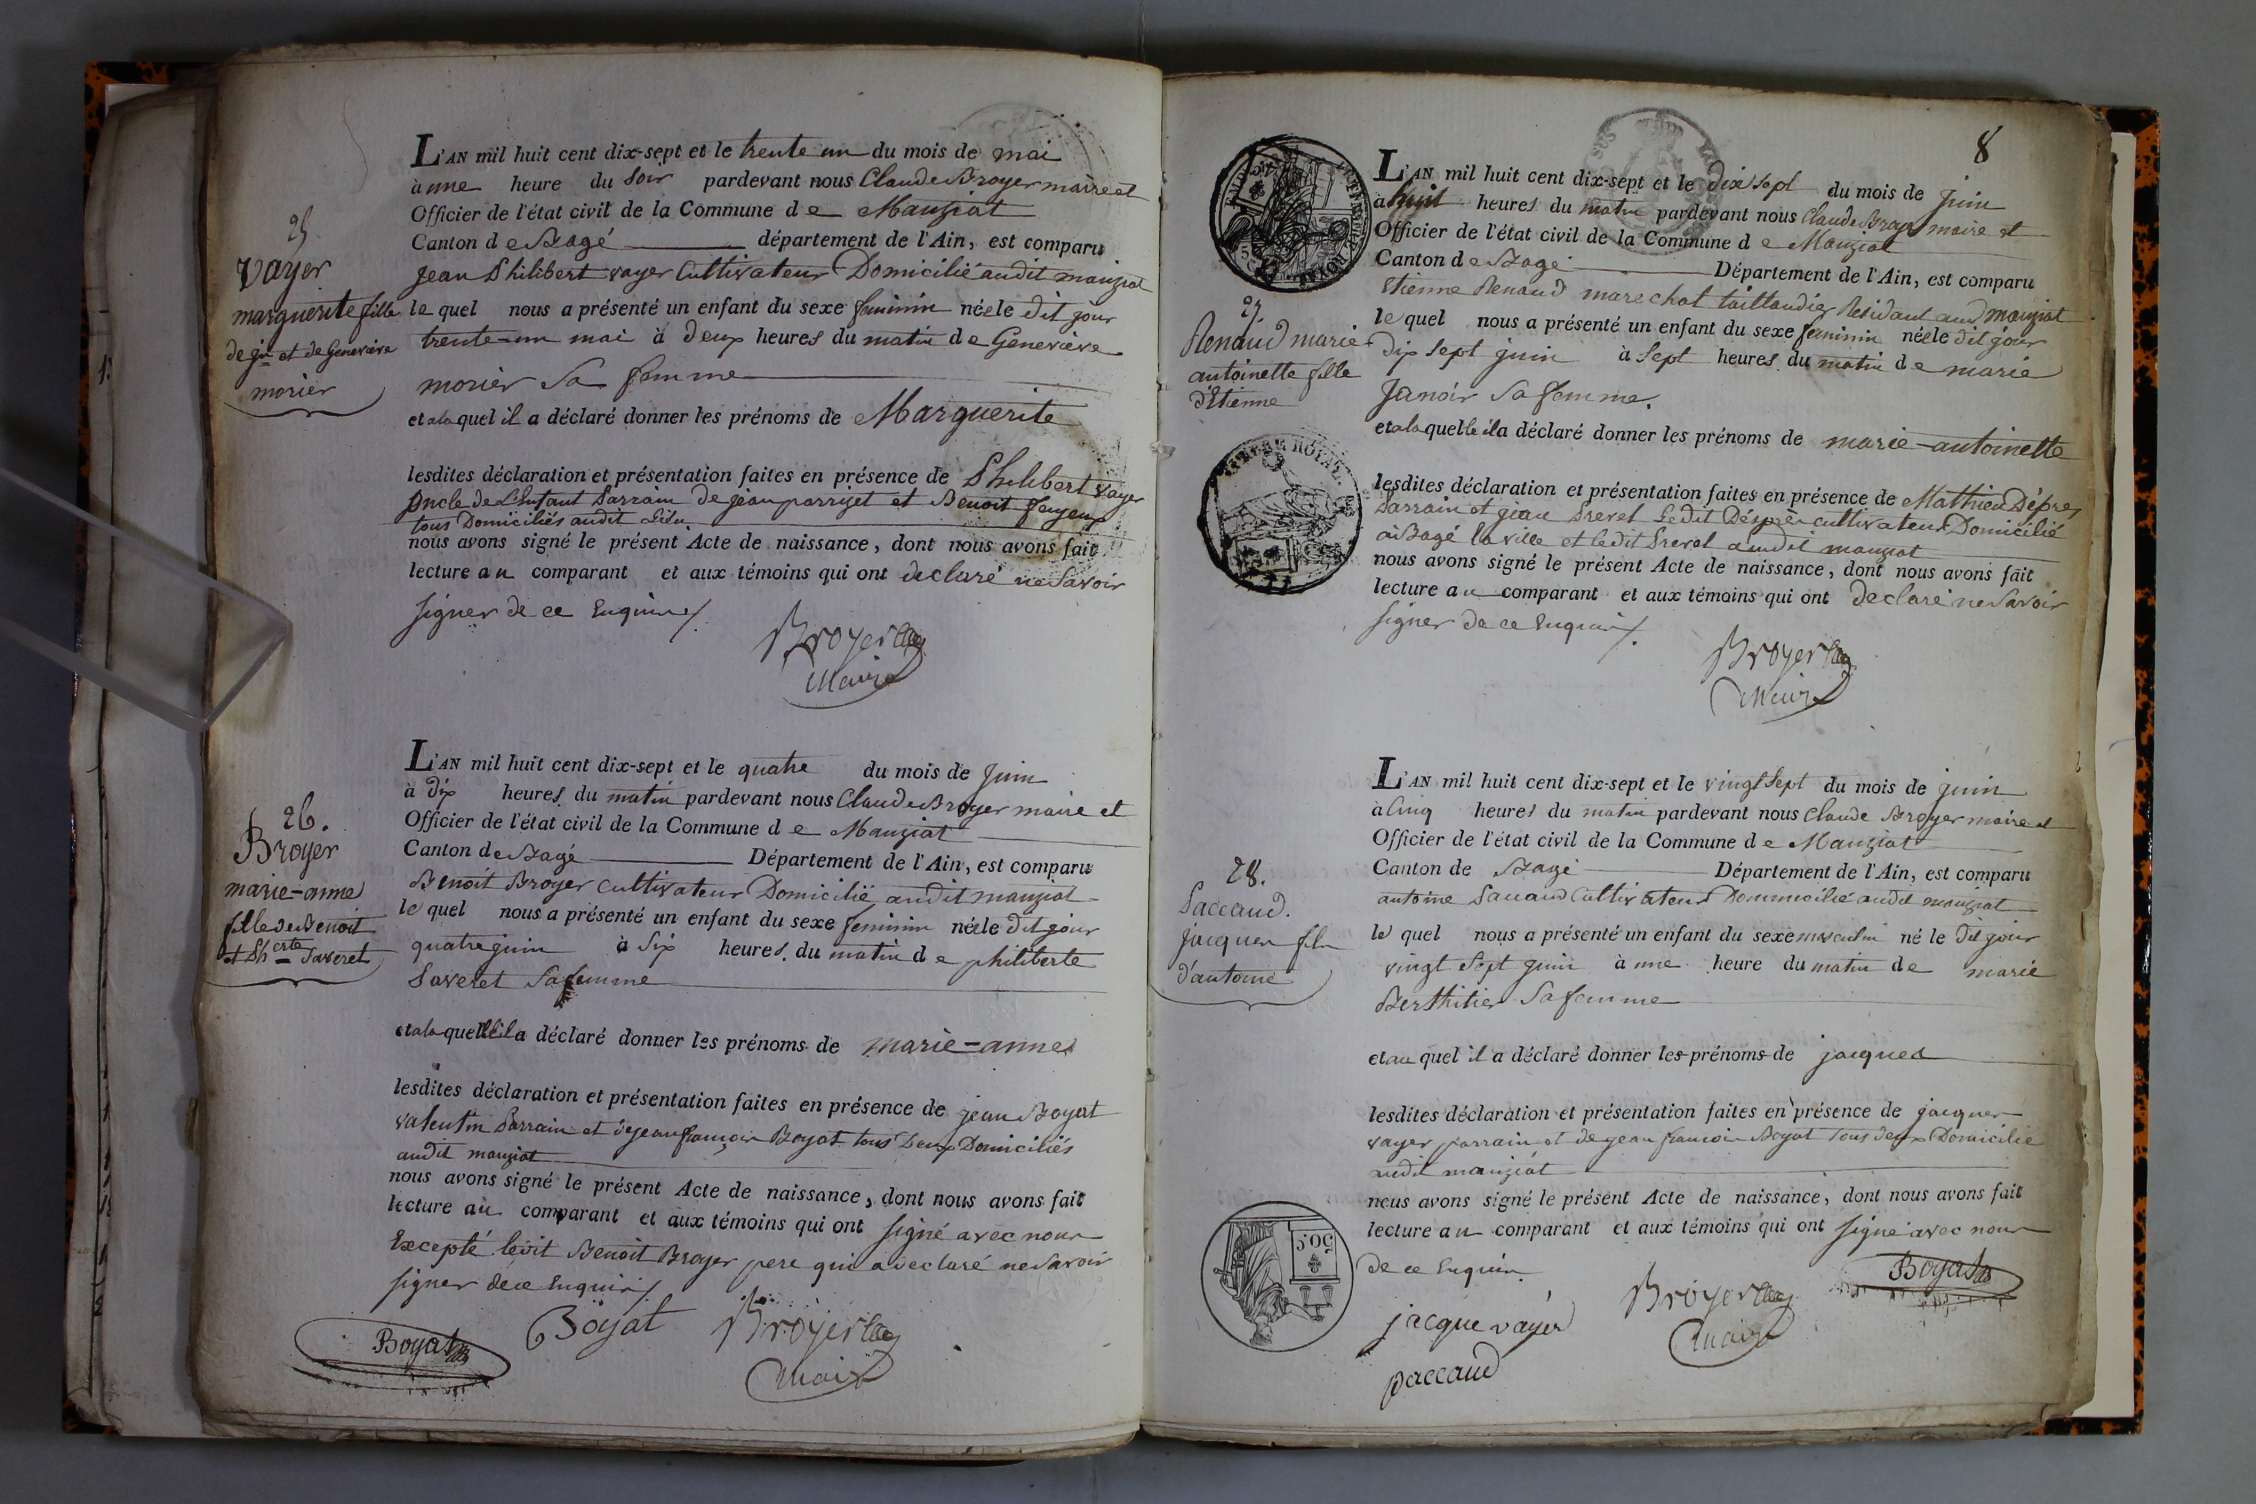 25
Vayer
marguerite fille
de jn et de Geneviève
morier
L'AN mil huit cent dix-sept et le trente un du mois de mai
à une heure du soir pardevant nous Claude Broyer maire et
Officier de l'état civil de la Commune de Manziat
Canton de Bagé département de l'Ain, est comparu
Jean Philibert vayer Cultivateur Domicilié audit manziat
lequel nous a présenté un enfant du sexe feminin née le dit jour
trente-un mai à deux heures du matin de Geneviève
morier sa femme
et a laquel il a déclaré donner les prénoms de Marguerite
lesdites déclaration et présentation faites en présence de Philibert vayer
oncle de L'Enfant Parrain de jean parrijet et Benoit
tous Domiciliés audit Lieu
nous avons signé le présent Acte de naissance, dont nous avons fait
lecture au comparant et aux témoins qui ont declaré ne savoir
signer de ce Enquis
Broyer
Maire
26.
Broyer
marie-anne
fille de Benoit
et Pherte Paveret
L'AN mil huit cent dix-sept et le quatre du mois de Juin
à dix heures du matin pardevant nous Claude Broyer maire et
Officier de l'état civil de la Commune de Manziat
Canton de Bagé Département de l'Ain, est comparu
Benoit Broyer cultivateur Domicilié audit manziat
lequel nous a présenté un enfant du sexe feminin née le dit jour
quatre juin à Six heures du matin de philiberte
Paveret sa femme
et a laquelle il a déclaré donner les prénoms de marie-anne
lesdites déclaration et présentation faites en présence de jean Boyat
valentin Parrain et de jean françois Boyat tous deux Domiciliés
audit manziat
nous avons signé le présent Acte de naissance, dont nous avons fait
lecture au comparant et aux témoins qui ont signé avec nous
Excepté ledit Benoit Broyer pere qui a declaré ne savoir
signer de ce Enquis
Boyat Boyat Broyer
Maire
8
27.
Renaud marie
antoinette fille
d'Etienne
L'AN mil huit cent dix-sept et le dix sept du mois de Juin
à huit heures du matin pardevant nous Claude Broyer maire et
Officier de l'état civil de la Commune de Manziat
Canton de Bagé Département de l'Ain, est comparu
Etienne Renaud marechal taillandier Residant aud manziat
lequel nous a présenté un enfant du sexe feminin née le dit jour
dix sept juin à Sept heures du matin de marie
Janoir sa femme.
et a laquelle il a déclaré donner les prénoms de marie-antoinette
lesdites déclaration et présentation faites en présence de Mathieu Déprès
Parrain et jean Prevel Ledit Désprès cultivateur Domicilié
à Bagé la ville et ledit Prevel audit manziat
nous avons signé le présent Acte de naissance, dont nous avons fait
lecture au comparant et aux témoins qui ont declaré ne savoir
signer de ce Enquis
Broyer
Maire
28.
Paccaud.
jacques fils
d'antoine
L'AN mil huit cent dix-sept et le vingt sept du mois de juin
à Cinq heures du matin pardevant nous Claude Broyer maire et
Officier de l'état civil de la Commune de Manziat
Canton de Bagé Département de l'Ain, est comparu
antoine Paccaud Cultivateur Dommicilié audit manziat
lequel nous a présenté un enfant du sexe masculin né le dit jour
vingt sept juin à une heure du matin de marie
Berthilier sa femme
et au quel il a déclaré donner les prénoms de jacques
lesdites déclaration et présentation faites en présence de jacques
vayer parrain et de jean francois Boyat tous deux Domicilié
audit manziat
nous avons signé le présent Acte de naissance, dont nous avons fait
lecture au comparant et aux témoins qui ont signé avec nous
de ce Enquis
50.C
Boyat
jacque vayer Broyer
Maire
paccaud